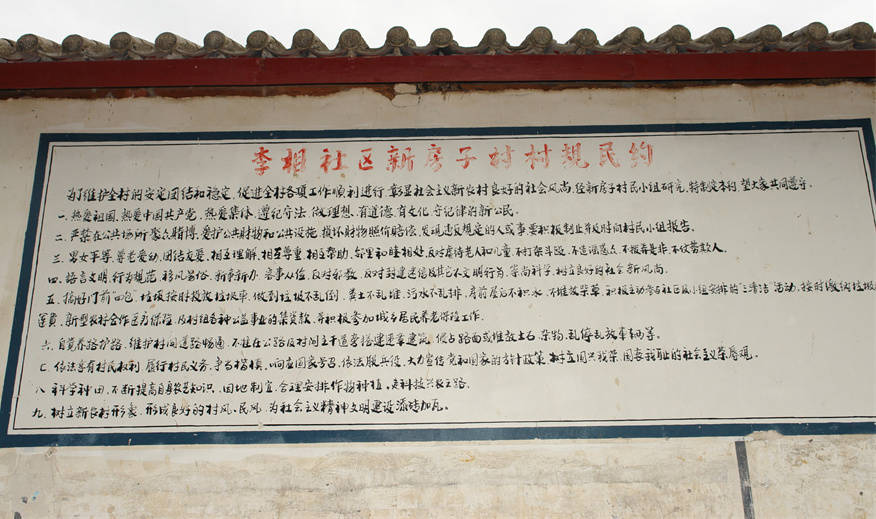 李相社区新房子村村规民约
为了维护全村的安定团结和稳定，促进全村各项工作顺利进行，彰显社会主义新农村良好的社会风尚，经新房子村民小组研究，特制定本约，望大家共同遵守。
一、热爱祖国，热爱中国共产党，热爱集体，遵纪守法，做理想、有道德、有文化、守纪律的新公民。
二、严禁在公共场所聚众赌博，爱护公共财物和公共设施，损坏财物照价赔偿，发现违反规定的人或事要积极制止并及时向村民小组报告。
三、男女平等，尊老爱幼，团结友爱，相互理解，相互尊重，相互帮助，邻里和睦相处，反对虐待老人和儿童，不打架斗殴，不造谣惑众，不拨弄是非，不仗势欺人。
四、语言文明，行为规范，移风易俗，新事新办，喜事从俭，反对铺张，反对封建迷信及其它不文明行为，崇尚科学，树立良好的社会新风尚。
五、搞好门前"四包"，垃圾按时投放垃圾车，做到垃圾不乱倒，粪土不乱堆，污水不乱排，房前屋后不积水，不堆放柴草，积极主动参与社区及小组安排的"三清洁"活动，按时缴纳垃圾
运费，新型农村合作医疗保险，及村组各种公益事业的集资款，并积极参加城乡居民养老保险工作。
六、自觉养路护路，维护村间道路畅通，不准在公路及村间主干道旁搭建违章建筑，侵占路面或堆放土石、杂物，乱停乱放车辆等。
七、依法享有村民权利，履行村民义务，争当楷模，响应国家号召，依法服兵役，大力宣传党和国家的方针政策，树立国兴我荣，国衰我耻的社会主义荣辱观。
八、科学种田，不断提高自身农艺知识，因地制宜，合理安排作物种植，走科技兴农之路。
九、树立新农村形象，形成良好的村风、民风，为社会主义精神文明建设添砖加瓦。